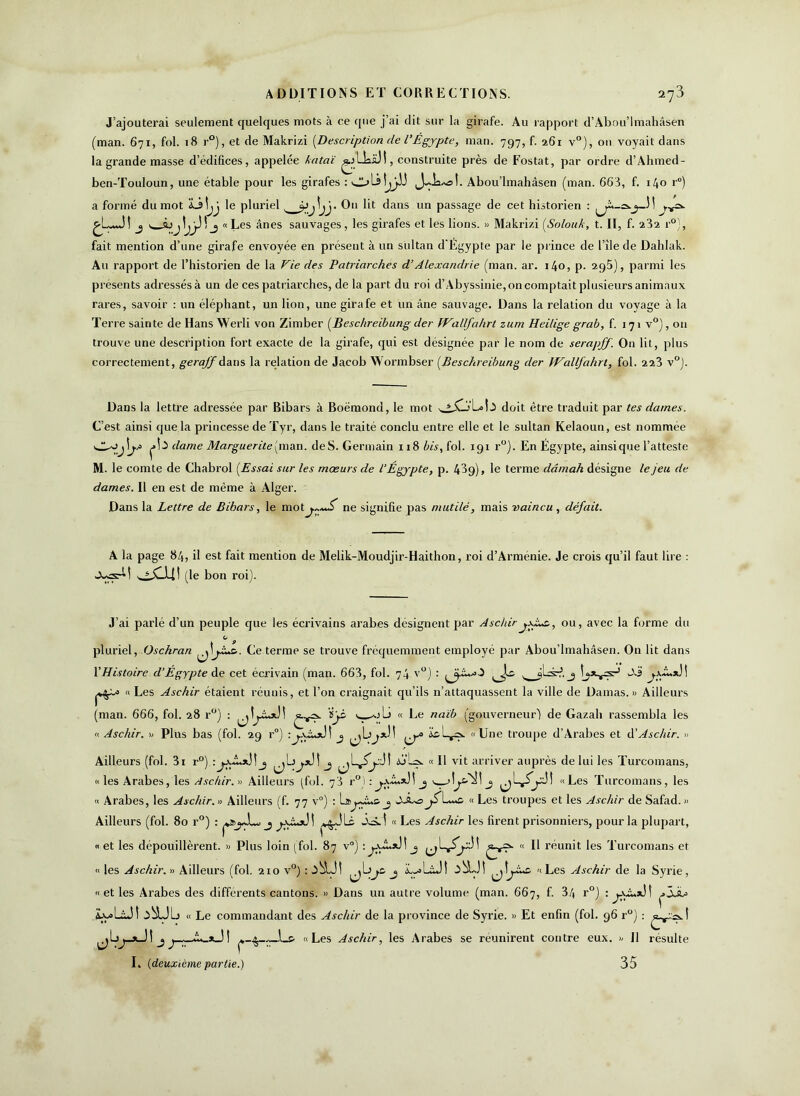 ADDITIONS ET CORRECTIONS. 273
J'ajouterai seulement quelques mots à ce que j'ai dit sur la girafe. Au rapport d'Abou'lmahâsen
(man. 671, fol. 18 r°), et de Makrizi (Description de l'Égypte, man. 797, f. 261 v°), on voyait dans
la grande masse d'édifices, appelée kataï القطايع, construite près de Fostat, par ordre d'Ahmed-
ben-Touloun, une étable pour les girafes : اصطبل للزرافات. Abou'lmahâsen (man. 663, f. 140 r°)
a formé du mot زرافة le pluriel زراريف. On lit dans un passage de cet historien :
والسباع « Les ânes sauvages, les girafes et les lions. » Makrizi (Solouk, t. II, f. 232 r°),
fait mention d'une girafe envoyée en présent à un sultan d'Égypte par le prince de l'île de Dahlak.
Au rapport de l'historien de la Vie des Patriarches d'Alexandrie (man. ar. 140, p. 295), parmi les
présents adressés à un de ces patriarches, de la part du roi d'Abyssinie, on comptait plusieurs animaux
rares, savoir : un éléphant, un lion, une girafe et un âne sauvage. Dans la relation du voyage à la
Terre sainte de Hans Werli von Zimber (Beschreibung der Wallfahrt zum Heilige grab, f. 171 v°), on
trouve une description fort exacte de la girafe, qui est désignée par le nom de serapff. On lit, plus
correctement, geraff dans la relation de Jacob Wormbser (Beschreibung der Wallfahrt, fol. 223 v°).
Dans la lettre adressée par Bibars à Boëmond, le mot داماتك doit être traduit par tes dames.
C'est ainsi que la princesse de Tyr, dans le traité conclu entre elle et le sultan Kelaoun, est nommée
دام مراريت dame Marguerite (man. de S. Germain 118 bis, fol. 191 r°). En Égypte, ainsi que l'atteste
M. le comte de Chabrol (Essai sur les mœurs de l'Égypte, p. 439), le terme dâmah désigne le jeu de
dames. Il en est de même à Alger.
Dans la Lettre de Bibars, le mot كسير ne signifie pas mutilé, mais vaincu, défait.
A la page 84, il est fait mention de Melik-Moudjir-Haithon, roi d'Arménie. Je crois qu'il faut lire :
الملك الجيد (le bon roi).
J'ai parlé d'un peuple que les écrivains arabes désignent par Aschir عشير, ou, avec la forme du
pluriel, Oschran عشران. Ce terme se trouve fréquemment employé par Abou'lmahâsen. On lit dans
l'Histoire d'Égypte de cet écrivain (man. 663, fol. 74 v°) : العشير قد تجمعوا ويخاف على دمشق
منهم « Les Aschir étaient réunis, et l'on craignait qu'ils n'attaquassent la ville de Damas. » Ailleurs
(man. 666, fol. 28 r°) : نايب غزة جمع العشران « Le naïb (gouverneur) de Gazah rassembla les
« Aschir. » Plus bas (fol. 29 r°) : جماعة من العربان والعشير « Une troupe d'Arabes et d'Aschir. »
Ailleurs (fol. 31 r°) : جاته التركمان والعربان والعشير « Il vit arriver auprès de lui les Turcomans,
« les Arabes, les Aschir. » Ailleurs (fol. 73 r°) : التركمان والاعراب والعشير « Les Turcomans, les
« Arabes, les Aschir. » Ailleurs (f. 77 v°) : عساكر صفد وعشيرها « Les troupes et les Aschir de Safad. »
Ailleurs (fol. 80 r°) : اخذ غالبهم العشير وسلبوهم « Les Aschir les firent prisonniers, pour la plupart,
« et les dépouillèrent. » Plus loin (fol. 87 v°) : جمع التركمان والعشير « Il réunit les Turcomans et
« les Aschir. » Ailleurs (fol. 210 v°) : عشران البلاد الشامية وعربان البلاد « Les Aschir de la Syrie,
« et les Arabes des différents cantons. » Dans un autre volume (man. 667, f. 34 r°) : مقدم العشير
بالبلاد الشامية « Le commandant des Aschir de la province de Syrie. » Et enfin (fol. 96 r°) : اجتمع
عليهم العشير والعربان « Les Aschir, les Arabes se réunirent contre eux. » Il résulte
I. (deuxième partie.) 35